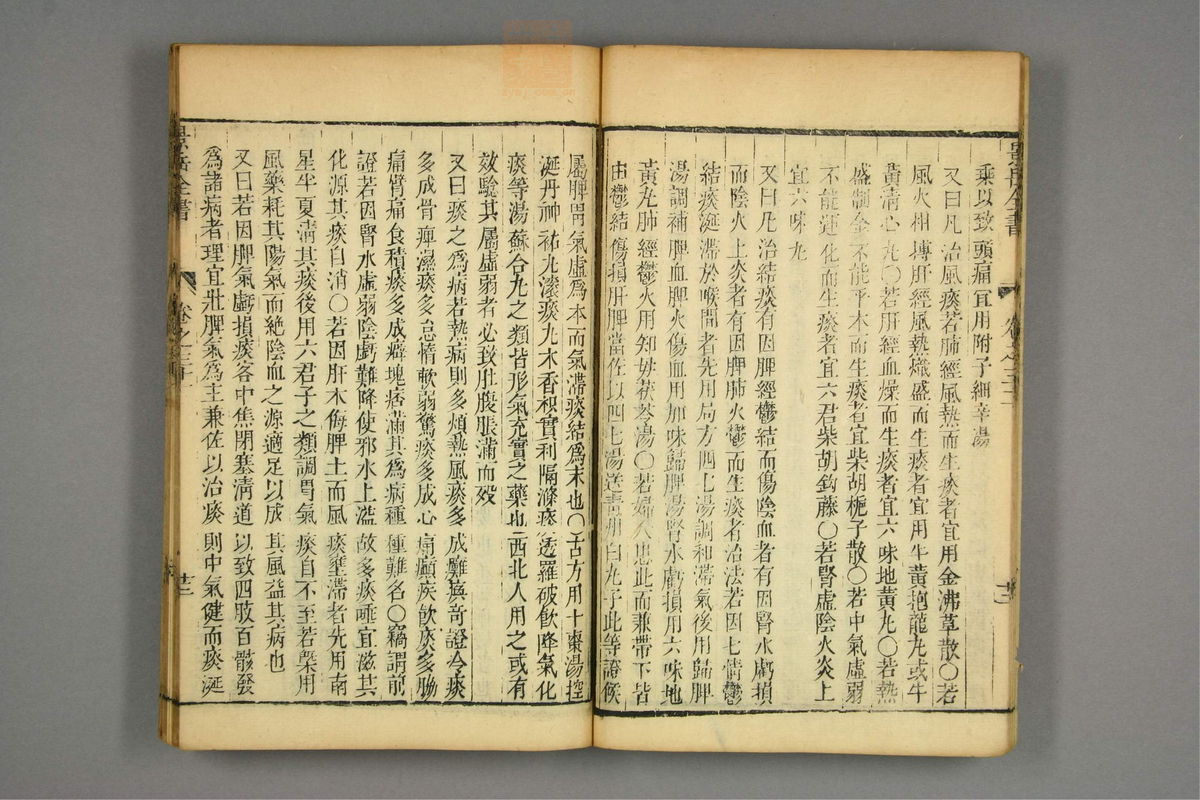 乘以致頭痛宜用附子細辛湯
又曰凡治風痰若肺經風熱而生痰者宜用金沸草散〇若
風火相摶肝經風熱熾盛而生痰者宜用牛黃抱龍丸或牛
黃清心丸〇若肝經血燥而生痰者宜六味地黃丸〇若熱
盛制金不能平木而生痰者宜柴胡梔子散〇若中氣虛弱
不能運化而生痰者宜六君柴胡鈎藤〇若腎虛陰火炎上
宜六味丸
又曰凡治結痰有因脾經鬱結而傷陰血者有因腎水虧損
而陰火上炎者有因脾肺火鬱而生痰者治法若因七情鬱
結痰涎滯於喉間者先用局方四七湯調和滯氣後用歸脾
湯調補脾血脾火傷血用加味歸脾湯腎水虧損用六味地
黃丸肺經鬱火用知母茯苓湯〇若婦人患此而兼帶下皆
由鬱結傷損肝脾當佐以四七湯送青州白丸子此等證候
屬脾胃氣虛為本而氣滯痰結為末也〇古方用十棗湯控
涎丹神祐丸滾痰丸木香枳實利隔滌痰透羅破飲降氣化
痰等湯蘇合丸之類皆形氣充實之藥也西北人用之或有
效驗其屬虛弱者必致肚腹脹滿而歿
又曰痰之為病若熱病則多煩熱風痰多成癱瘓奇證冷痰
多成骨痺濕痰多怠惰軟弱驚痰多成心痛癲疾飲痰多脇
痛臂痛食積痰多成癖塊痞滿其為病種種難名〇竊謂前
證若因腎水虛弱陰虧難降使邪水上溢故多痰唾宜滋其
化源其痰自消〇若因肝木侮脾土而風痰壅滯者先用南
星半夏清其痰後用六君子之類調胃氣痰自不至若槩用
風藥耗其陽氣而絕陰血之源適足以成其風益其病也
又曰若因脾氣虧損痰客中焦閉塞清道以致四肢百骸發
為諸病者理宜壯脾氣為主兼佐以治痰則中氣健而痰涎
景岳全書
卷之三十一